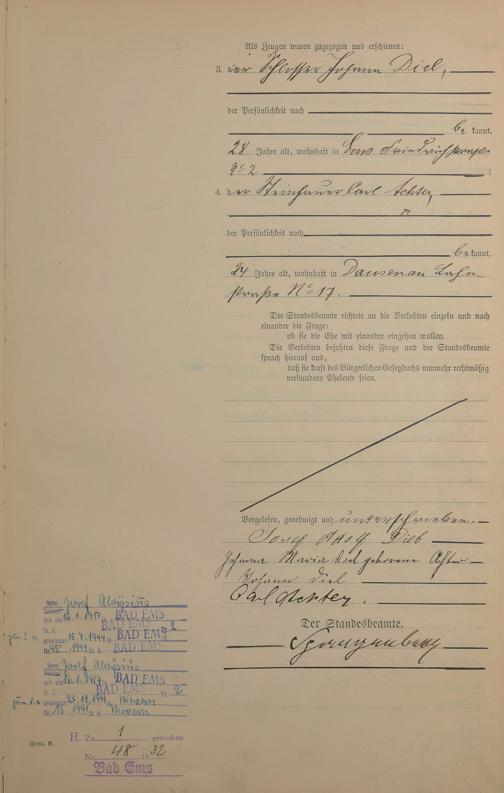 Als Zeugen waren zugezogen und erschienen:
3. der Schlosser Johann Diel,
der Persönlichkeit nach
be kannt,
28 Jahre alt, wohnhaft in Ems Friedrichstraße
No 2 ;
4. der Steinhauer Carl Achter,
der Persönlichkeit nach
be kannt,
24 Jahre alt, wohnhaft in Dausenau Lahn-
straße No 17.
Der Standesbeamte richtete an die Verlobten einzeln und nach
einander die Frage:
ob sie die Ehe mit einander eingehen wollen.
Die Verlobten bejahten diese Frage und der Standesbeamte
sprach hierauf aus,
daß sie kraft des Bürgerlichen Gesetzbuchs nunmehr rechtmäßig
verbundene Eheleute seien.
Vorgelesen, genehmigt und unterschrieben
Josef Adolf
Johanna Maria Diel geborene Achter
Johann Diel
Carl Achter.
Der Standesbeamte.
Spangenberg
Josef Aloysius
BAD EMS
BAD EMS
15.4.1944 in BAD EMS
Nr. 45 1944 St. A. BAD EMS
Josef Aloysius
BAD EMS
BAD EMS Nr. 2
1941 Nievern
Nr. 13 1941 St. A. Nievern
H. Zu 1 gestorben
Nr. 48 1932
Bad Ems
Form. B.